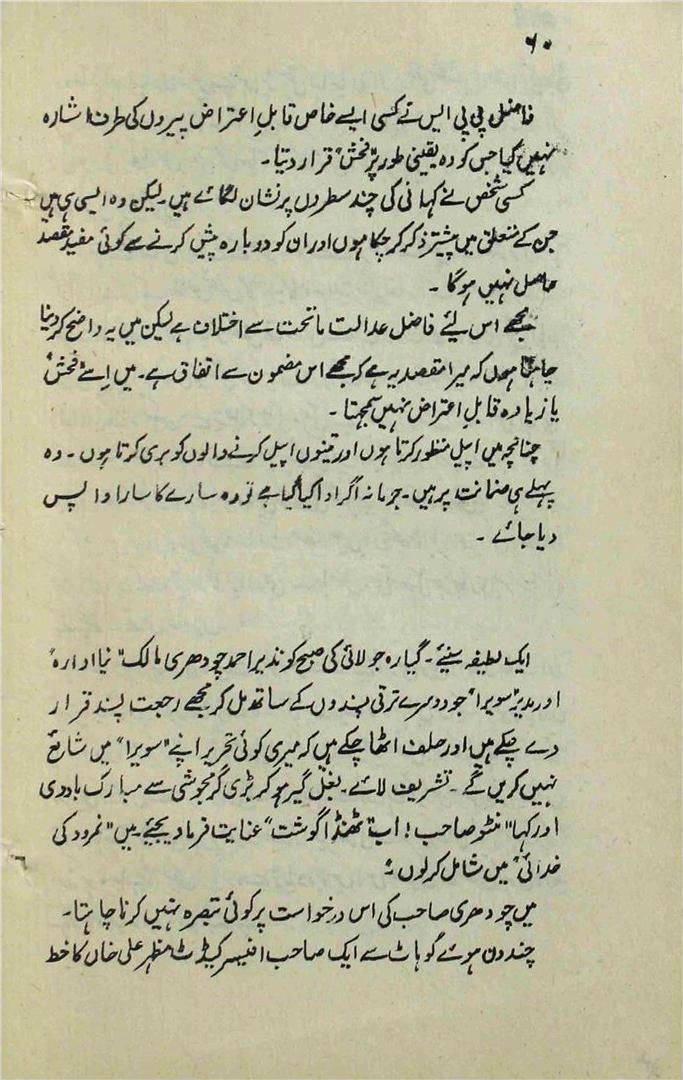 ۶۰
فاضل پی پی ایس نے کسی ایسے خاص قابلِ اعتراض پیروں کی طرف اشارہ
نہیں کیا جس کو وہ یقینی طور پر "فحش" قرار دیتا۔
کسی شخص نے کہانی کی چند سطروں پر نشان لگائے ہیں۔ لیکن وہ ایسی ہی ہیں
جن کے متعلق میں پیشتر ذکر کر چکا ہوں اور ان کو دوبارہ پیش کرنے سے کوئی مفید مقصد
حاصل نہیں ہوگا۔
مجھے اس لئے فاضل عدالت ماتحت سے اختلاف ہے لیکن میں یہ واضح کر دینا
چاہتا ہوں کہ میرا مقصد یہ ہے کہ مجھے اس مضمون سے اتفاق ہے۔ میں اسے "فحش"
یا زیادہ قابلِ اعتراض نہیں سمجھتا۔
چنانچہ میں اپیل منظور کرتا ہوں اور تینوں اپیل کرنے والوں کو بری کرتا ہوں۔ وہ
پہلے ہی ضمانت پر ہیں۔ جرمانہ اگر ادا کیا گیا ہے تو وہ سارے کا سارا واپس
دیا جائے۔
ایک لطیفہ سنیئے۔ گیارہ جولائی کی صبح کو نذیر احمد چودھری مالک "نیا ادارہ"
اور مدیر "سویرا" جو دوسرے ترقی پسندوں کے ساتھ مل کر مجھے رجعت پسند قرار
دے چکے ہیں اور حلف اٹھا چکے ہیں کہ میری کوئی تحریر اپنے "سویرا" میں شائع
نہیں کریں گے۔ تشریف لائے۔ بغل گیر ہو کر بڑی گرمجوشی سے مبارک باد دی
اور کہا "منٹو صاحب! اب "ٹھنڈا گوشت" عنایت فرما دیجئے۔ میں "نمرود کی
خدائی" میں شامل کر لوں"۔
میں چودھری صاحب کی اس درخواست پر کوئی تبصرہ نہیں کرنا چاہتا۔
چند دن ہوئے کوہاٹ سے ایک صاحب افیسر کیڈٹ مظہر علی خاں کا خط